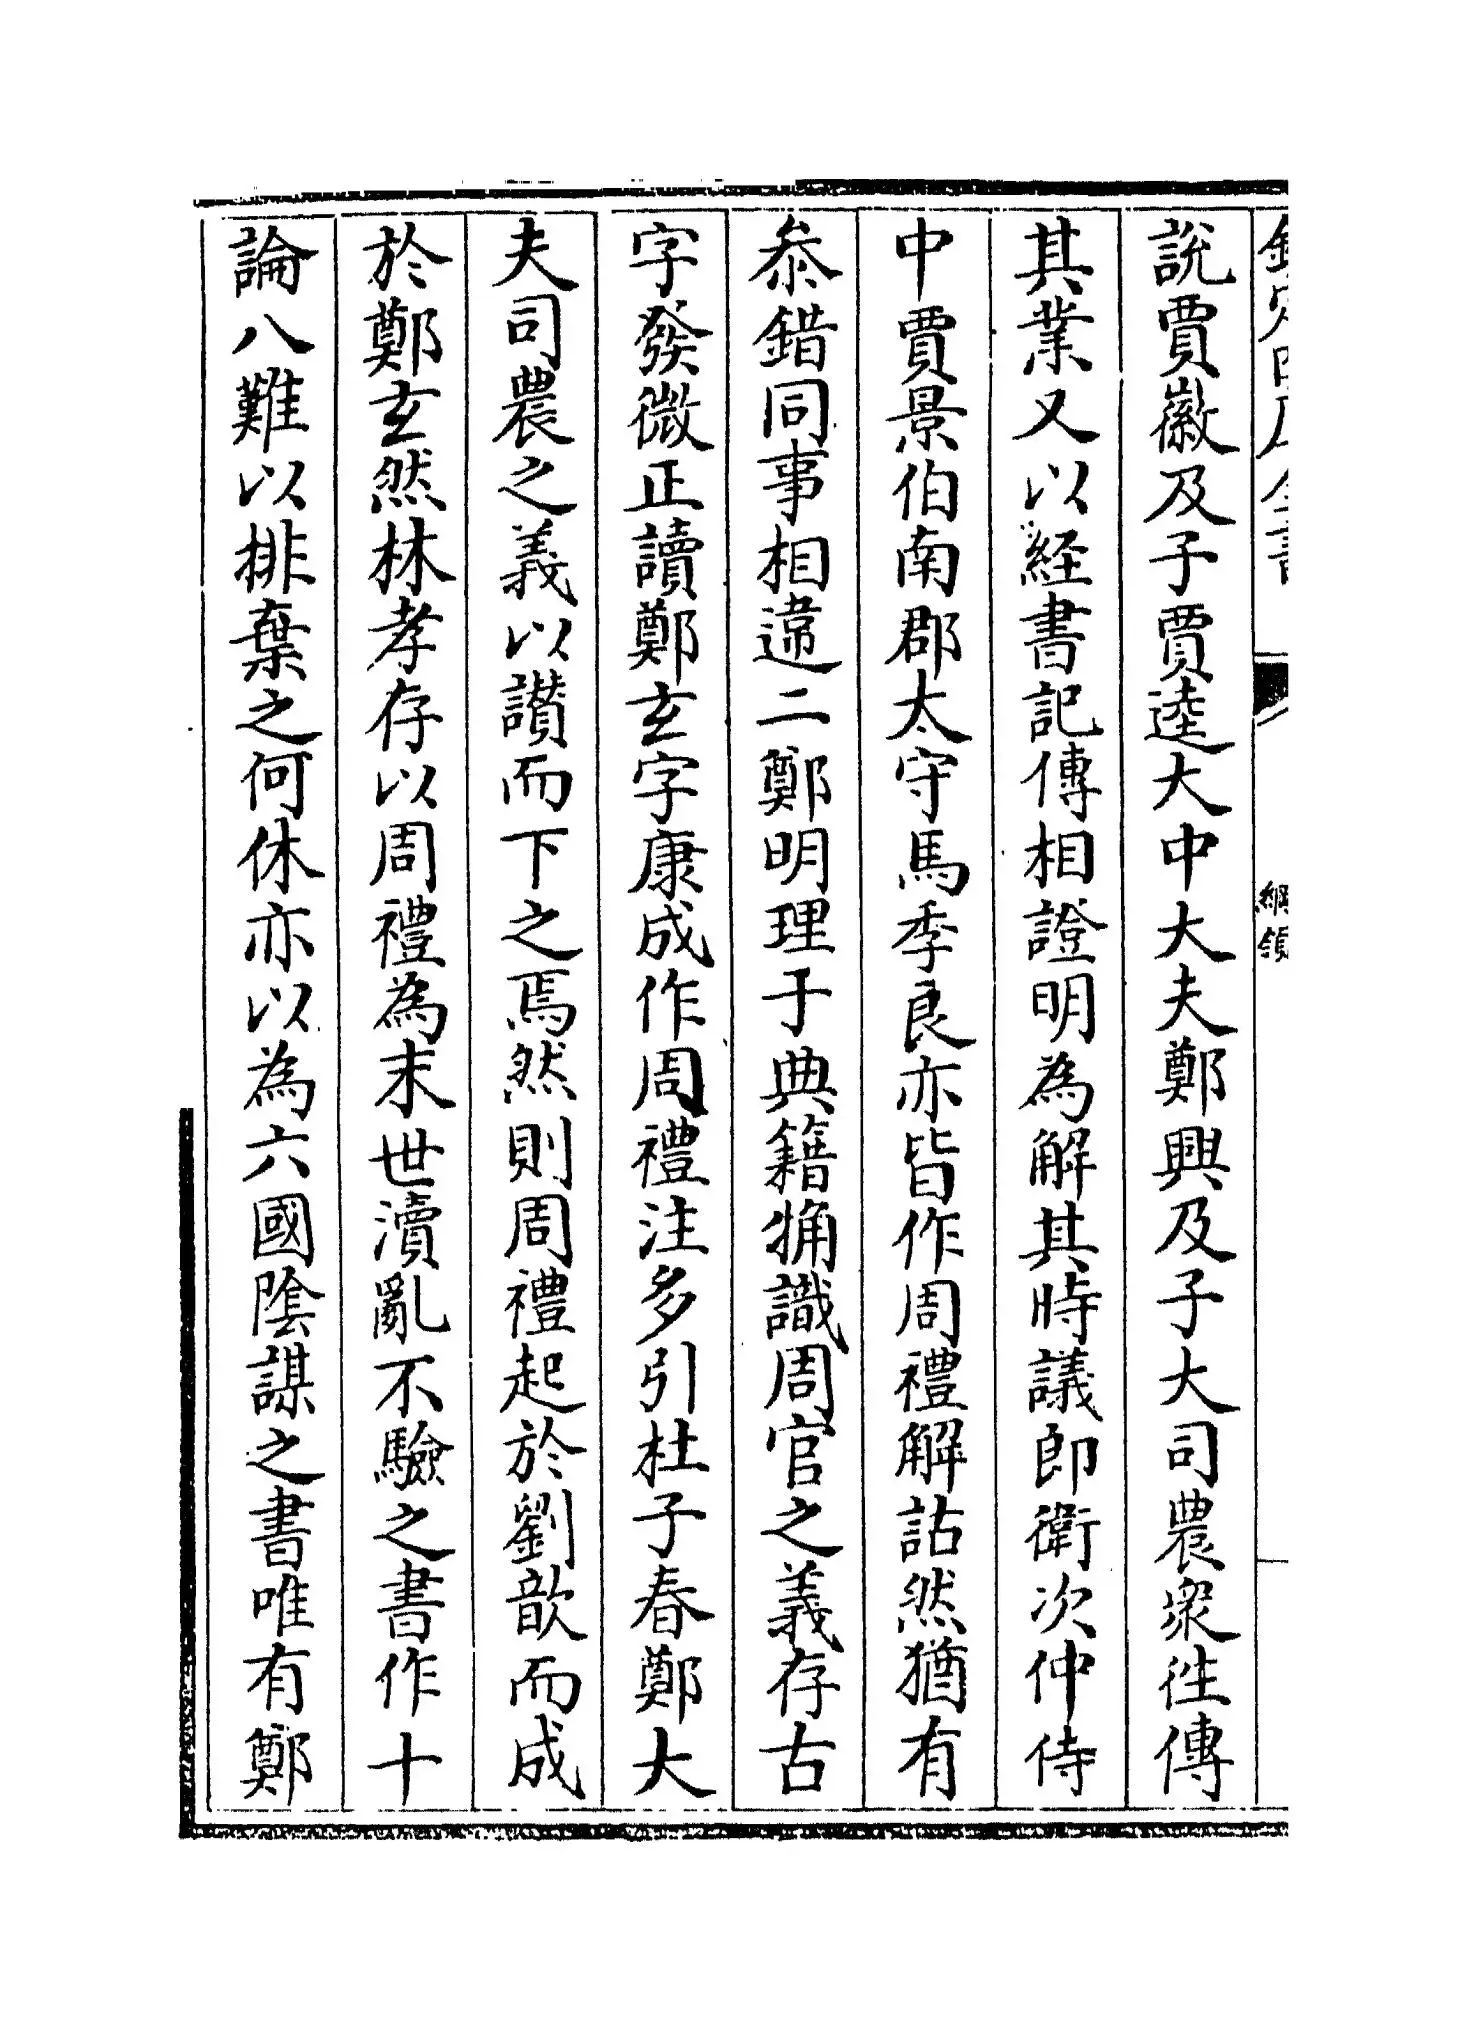 欽定四庫全書
綱領
說賈徽及子賈逵大中大夫鄭興及子大司農眾徃傳
其業又以經書記傳相證明為解其時議郎衛次仲侍
中賈景伯南郡太守馬季良亦皆作周禮解詁然猶有
叅錯同事相違二鄭明理于典籍觕識周官之義存古
字發微正讀鄭玄字康成作周禮注多引杜子春鄭大
夫司農之義以讃而下之焉然則周禮起於劉歆而成
於鄭玄然林孝存以周禮為末世瀆亂不驗之書作十
論八難以排棄之何休亦以為六國隂謀之書唯有鄭